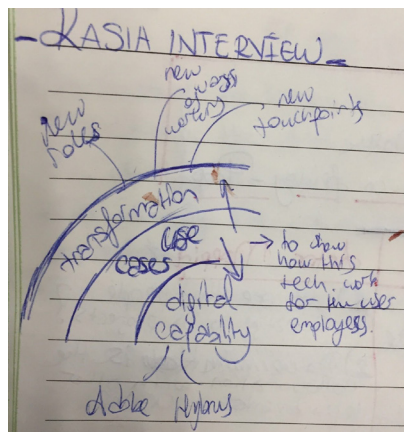 - KASIA INTERVIEW -
new
ways
of
working
new
roles
new
touchpoints
transformation
use
cases
→ to show
how this
tech. work
for the user
employess.
digital
capability
Adobe Hybris